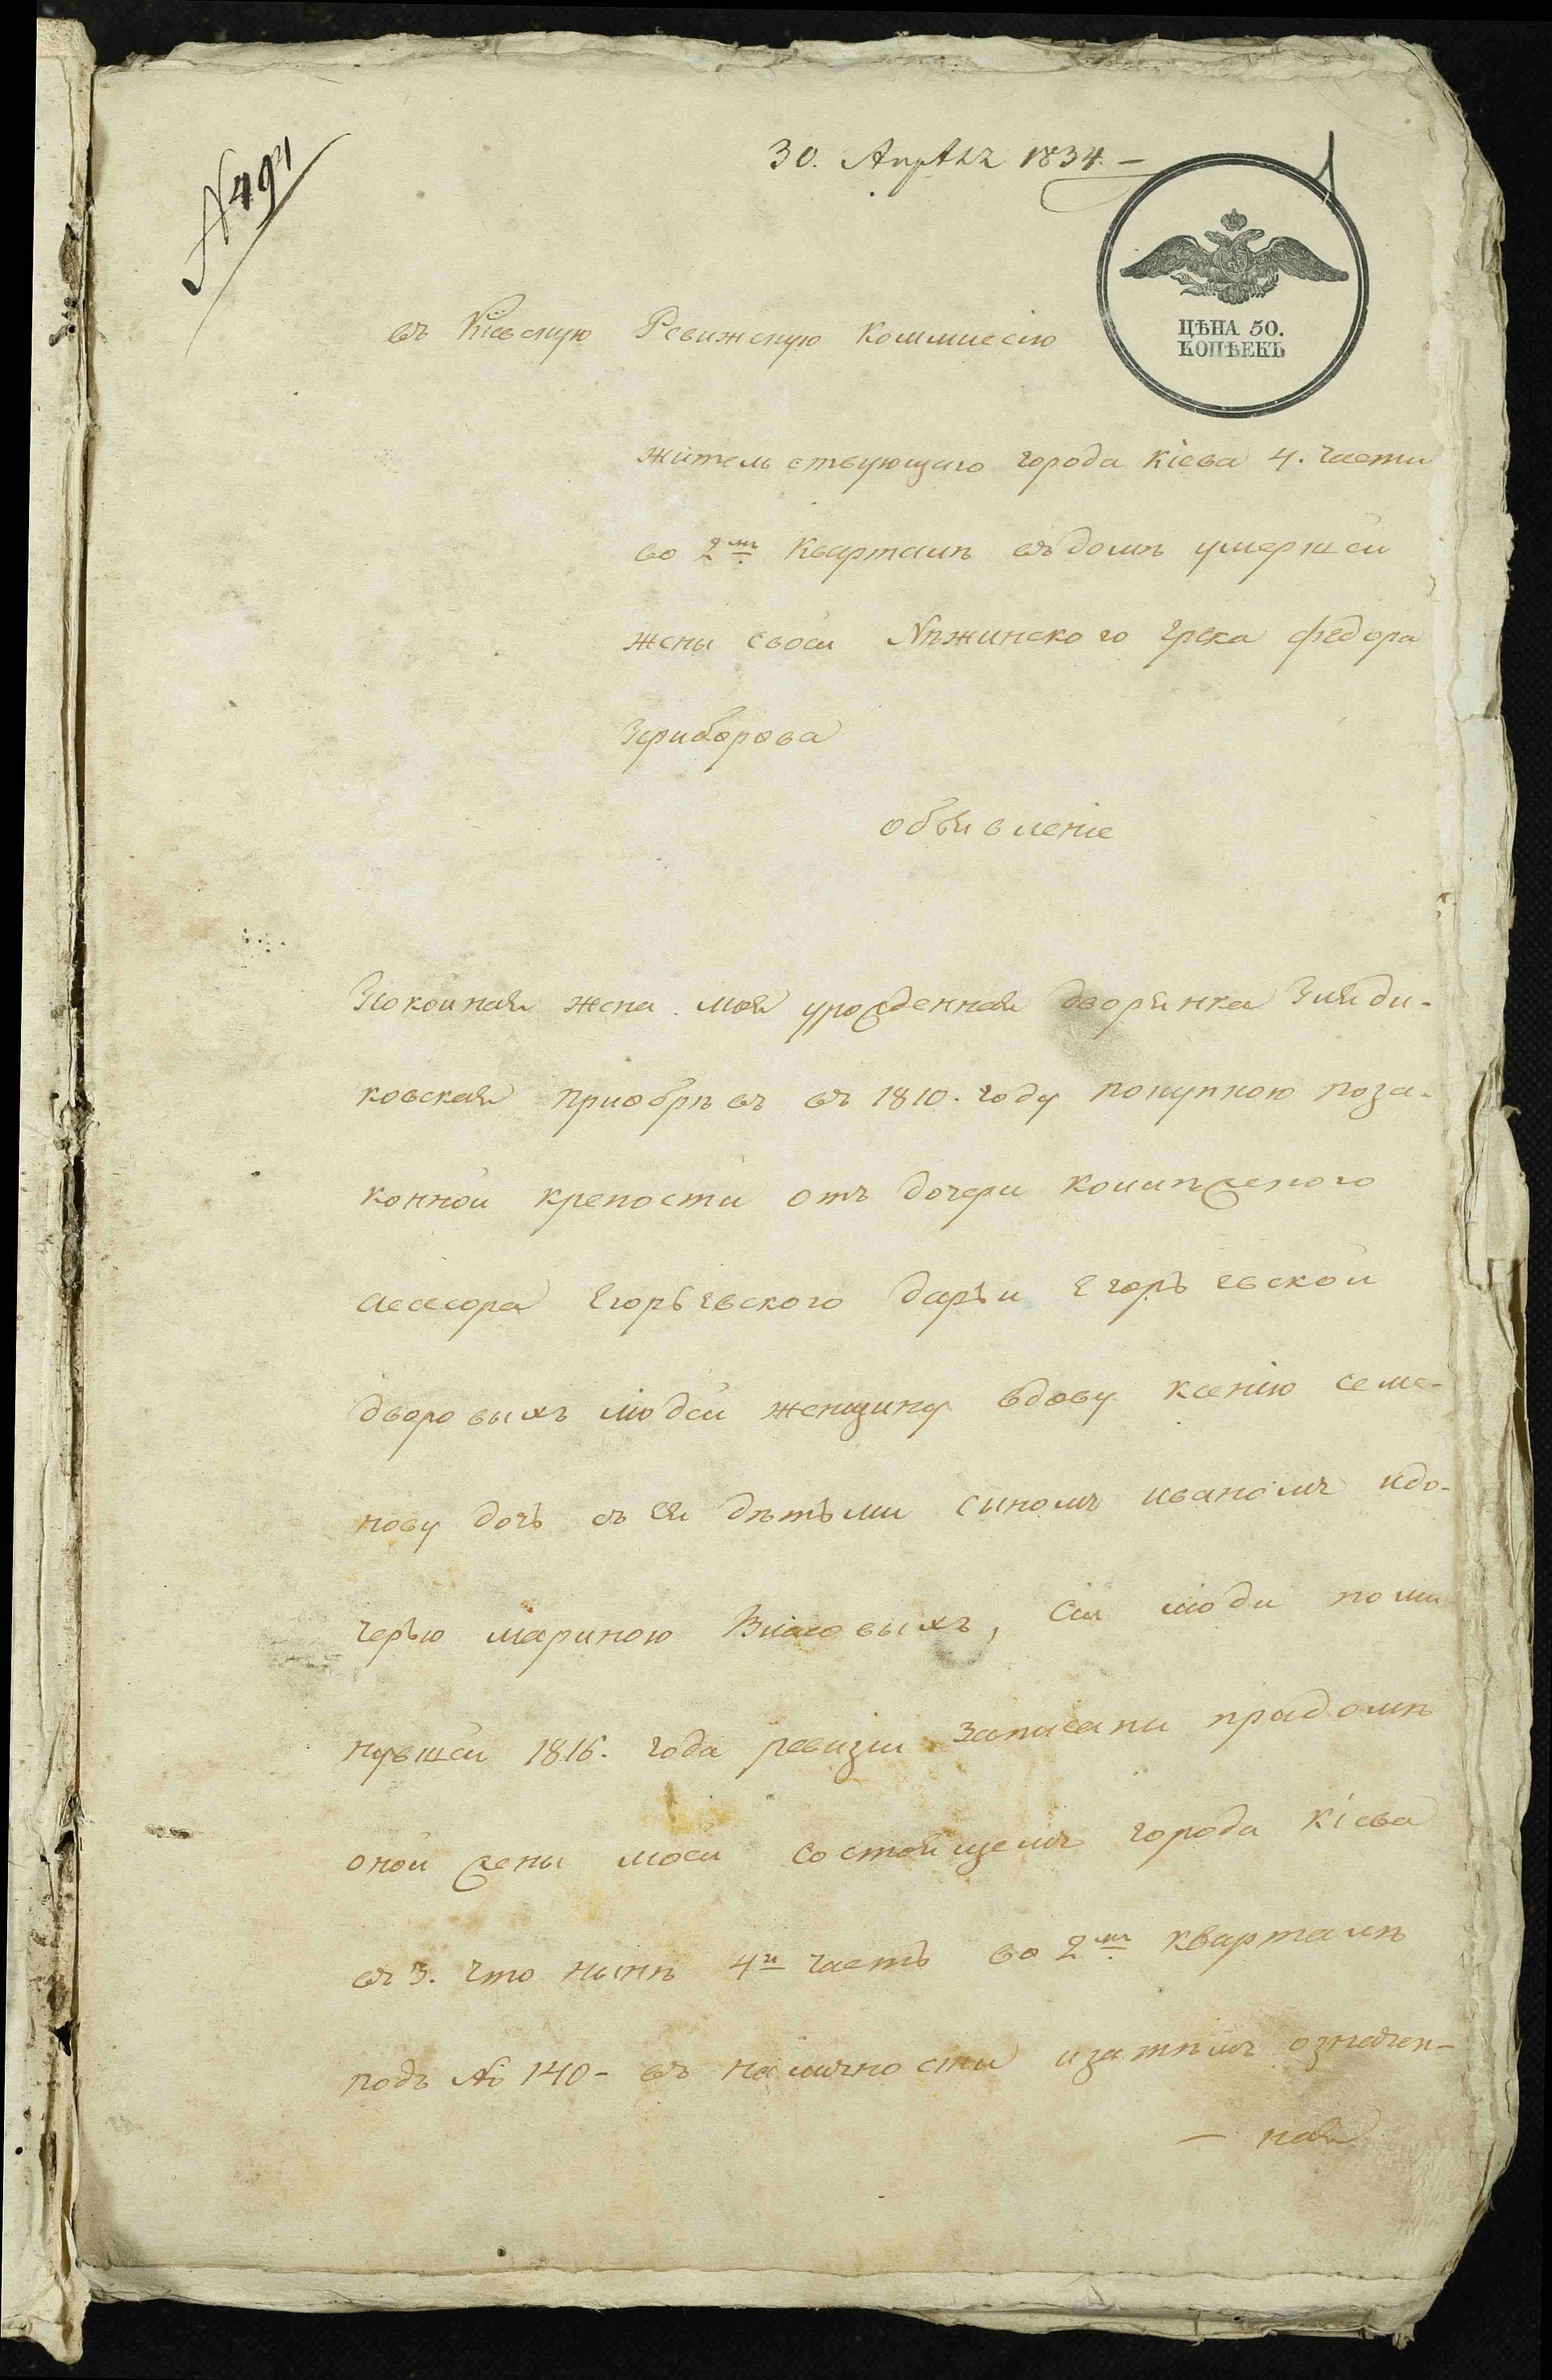 № 491
30. Апрѣля 1834. —
ЦѢНА 50.
КОПѢЕКЪ
въ Кіевскую Ревижскую Коммиссію
жительствующаго города Кіева 4. части
во 2мъ Кварталѣ въ домѣ умершей
жены своей Нѣжинского Грека Федора
Зериборова
объявленіе
Покойная жена моя урожденная дворянка
ковская приобрѣвъ въ 1810. году покупкою поза-
конной крепости отъ дочери колѣжского
асесора Егорьевского Дарьи Егорьевской
дворовыхъ людей женщину вдову Ксенію Семе-
нову дочь съ ея дѣтьми Сыномъ Иваномъ идо-
черью Мариною Власовыхъ, Сіи люди поми-
нувшей 1816. года ревизіи Записани придомѣ
оной жены моей состоящемъ города Кіева
въ 3. что нынѣ 4й часть во 2мъ кварталѣ
подъ № 140 - въ наличности изатѣмъ означен-
— ная